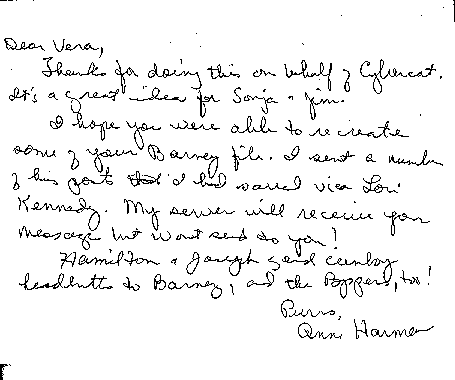 Dear Vera,
Thanks for doing this on behalf of Cybercat.
It's a great idea for Sonja & Jim.
I hope you were able to recreate
some of your Barney file. I sent a number
of his posts that I had saved via Lori
Kennedy. My server will receive your
message but won't send to you!
Hamilton & Joseph send
headbutts to Barney, and the Poppers, too!
Purrs,
Anne Harmon